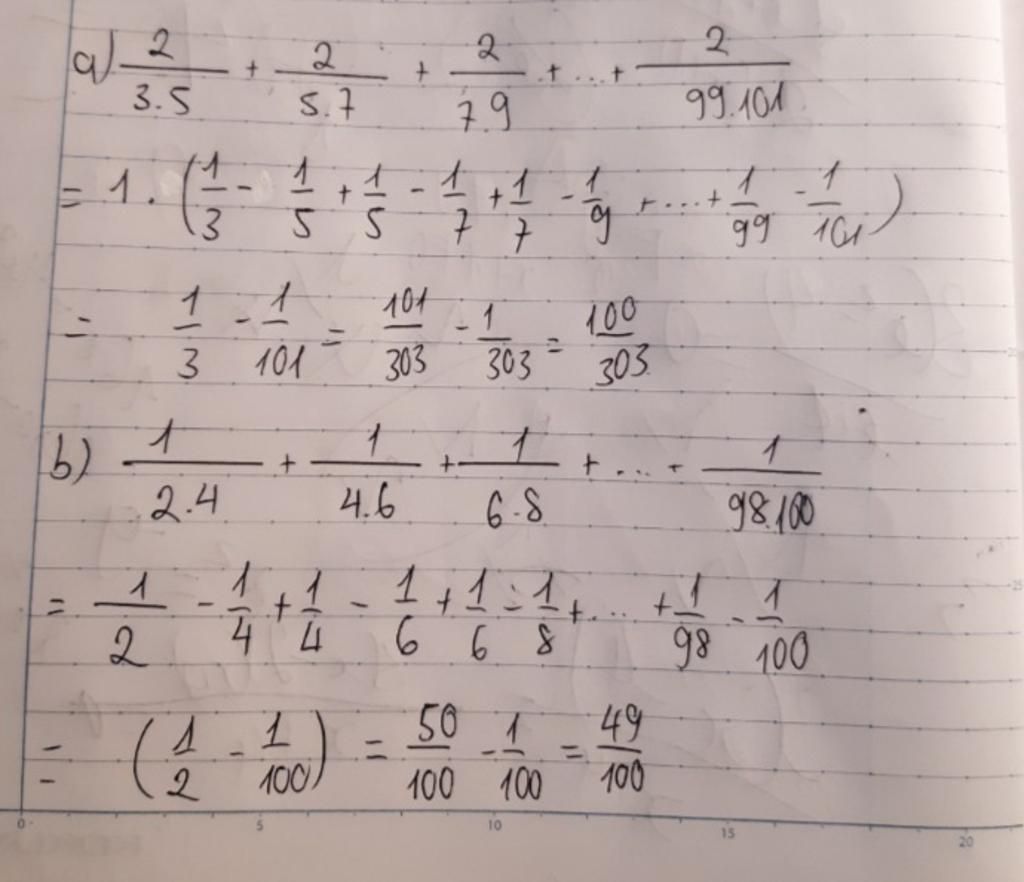 a) 2/3.5 + 2/5.7 + 2/7.9 + ... + 2/99.101
= 1 . (1/3 - 1/5 + 1/5 - 1/7 + 1/7 - 1/9 + ... + 1/99 - 1/101)
= 1/3 - 1/101 = 101/303 - 1/303 = 100/303
b) 1/2.4 + 1/4.6 + 1/6.8 + ... + 1/98.100
= 1/2 - 1/4 + 1/4 - 1/6 + 1/6 - 1/8 + ... + 1/98 - 1/100
= (1/2 - 1/100) = 50/100 - 1/100 = 49/100
0 5 10 15 20